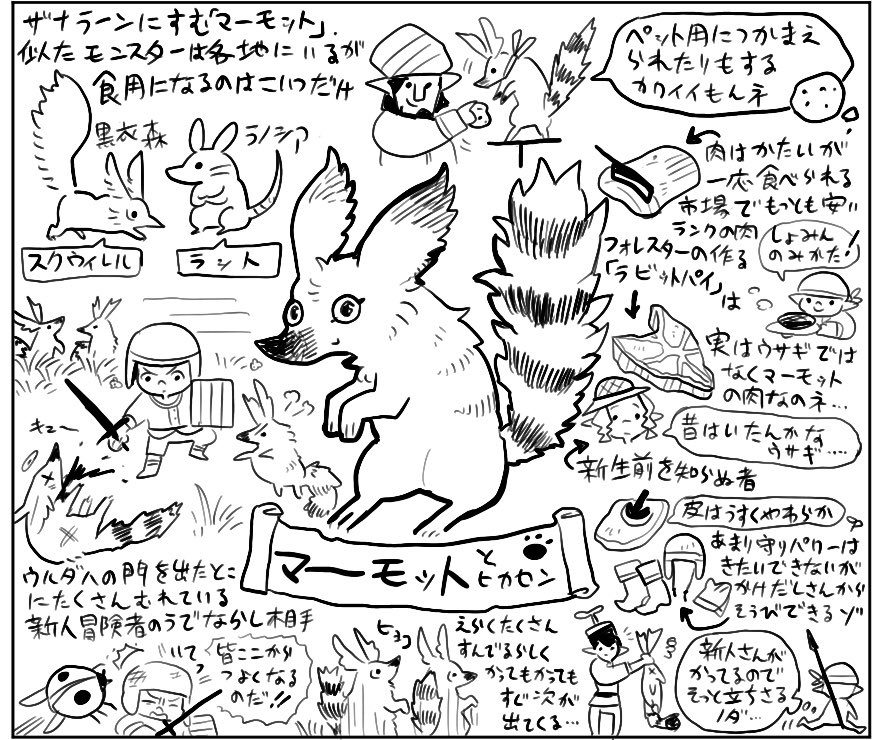 ザナラーンにすむ「マーモット」.
似たモンスターは各地にいるが
食用になるのはこいつだけ
黒衣森
ラノシア
スクウィレル
ラット
ペット用につかまえ
られたりもする
カワイイもんネ
肉はかたいが
一応食べられる
市場でもっとも安い
ランクの肉
しょみん
のみかた!
フォレスターの作る
「ラビットパイ」
は
実はウサギでは
なくマーモット
の肉なのネ…
昔はいたんかな
ウサギ……
新生前を知らぬ者
皮はうすくやわらか
あまり守りパワーは
きたいできないが
かけだしさんから
そうびできるゾ
キュー
マーモット
と
ヒカセン
ウルダハの門を出たとこ
にたくさんむれている
新人冒険者のうでならし相手
いてっ
皆ここから
つよくなる
のだ!!
ヒョコ
えらくたくさん
すんでるらしく
かってもかっても
すぐ次が
出てくる…
新人さんが
かってるので
そっと立ちさる
ノダ…